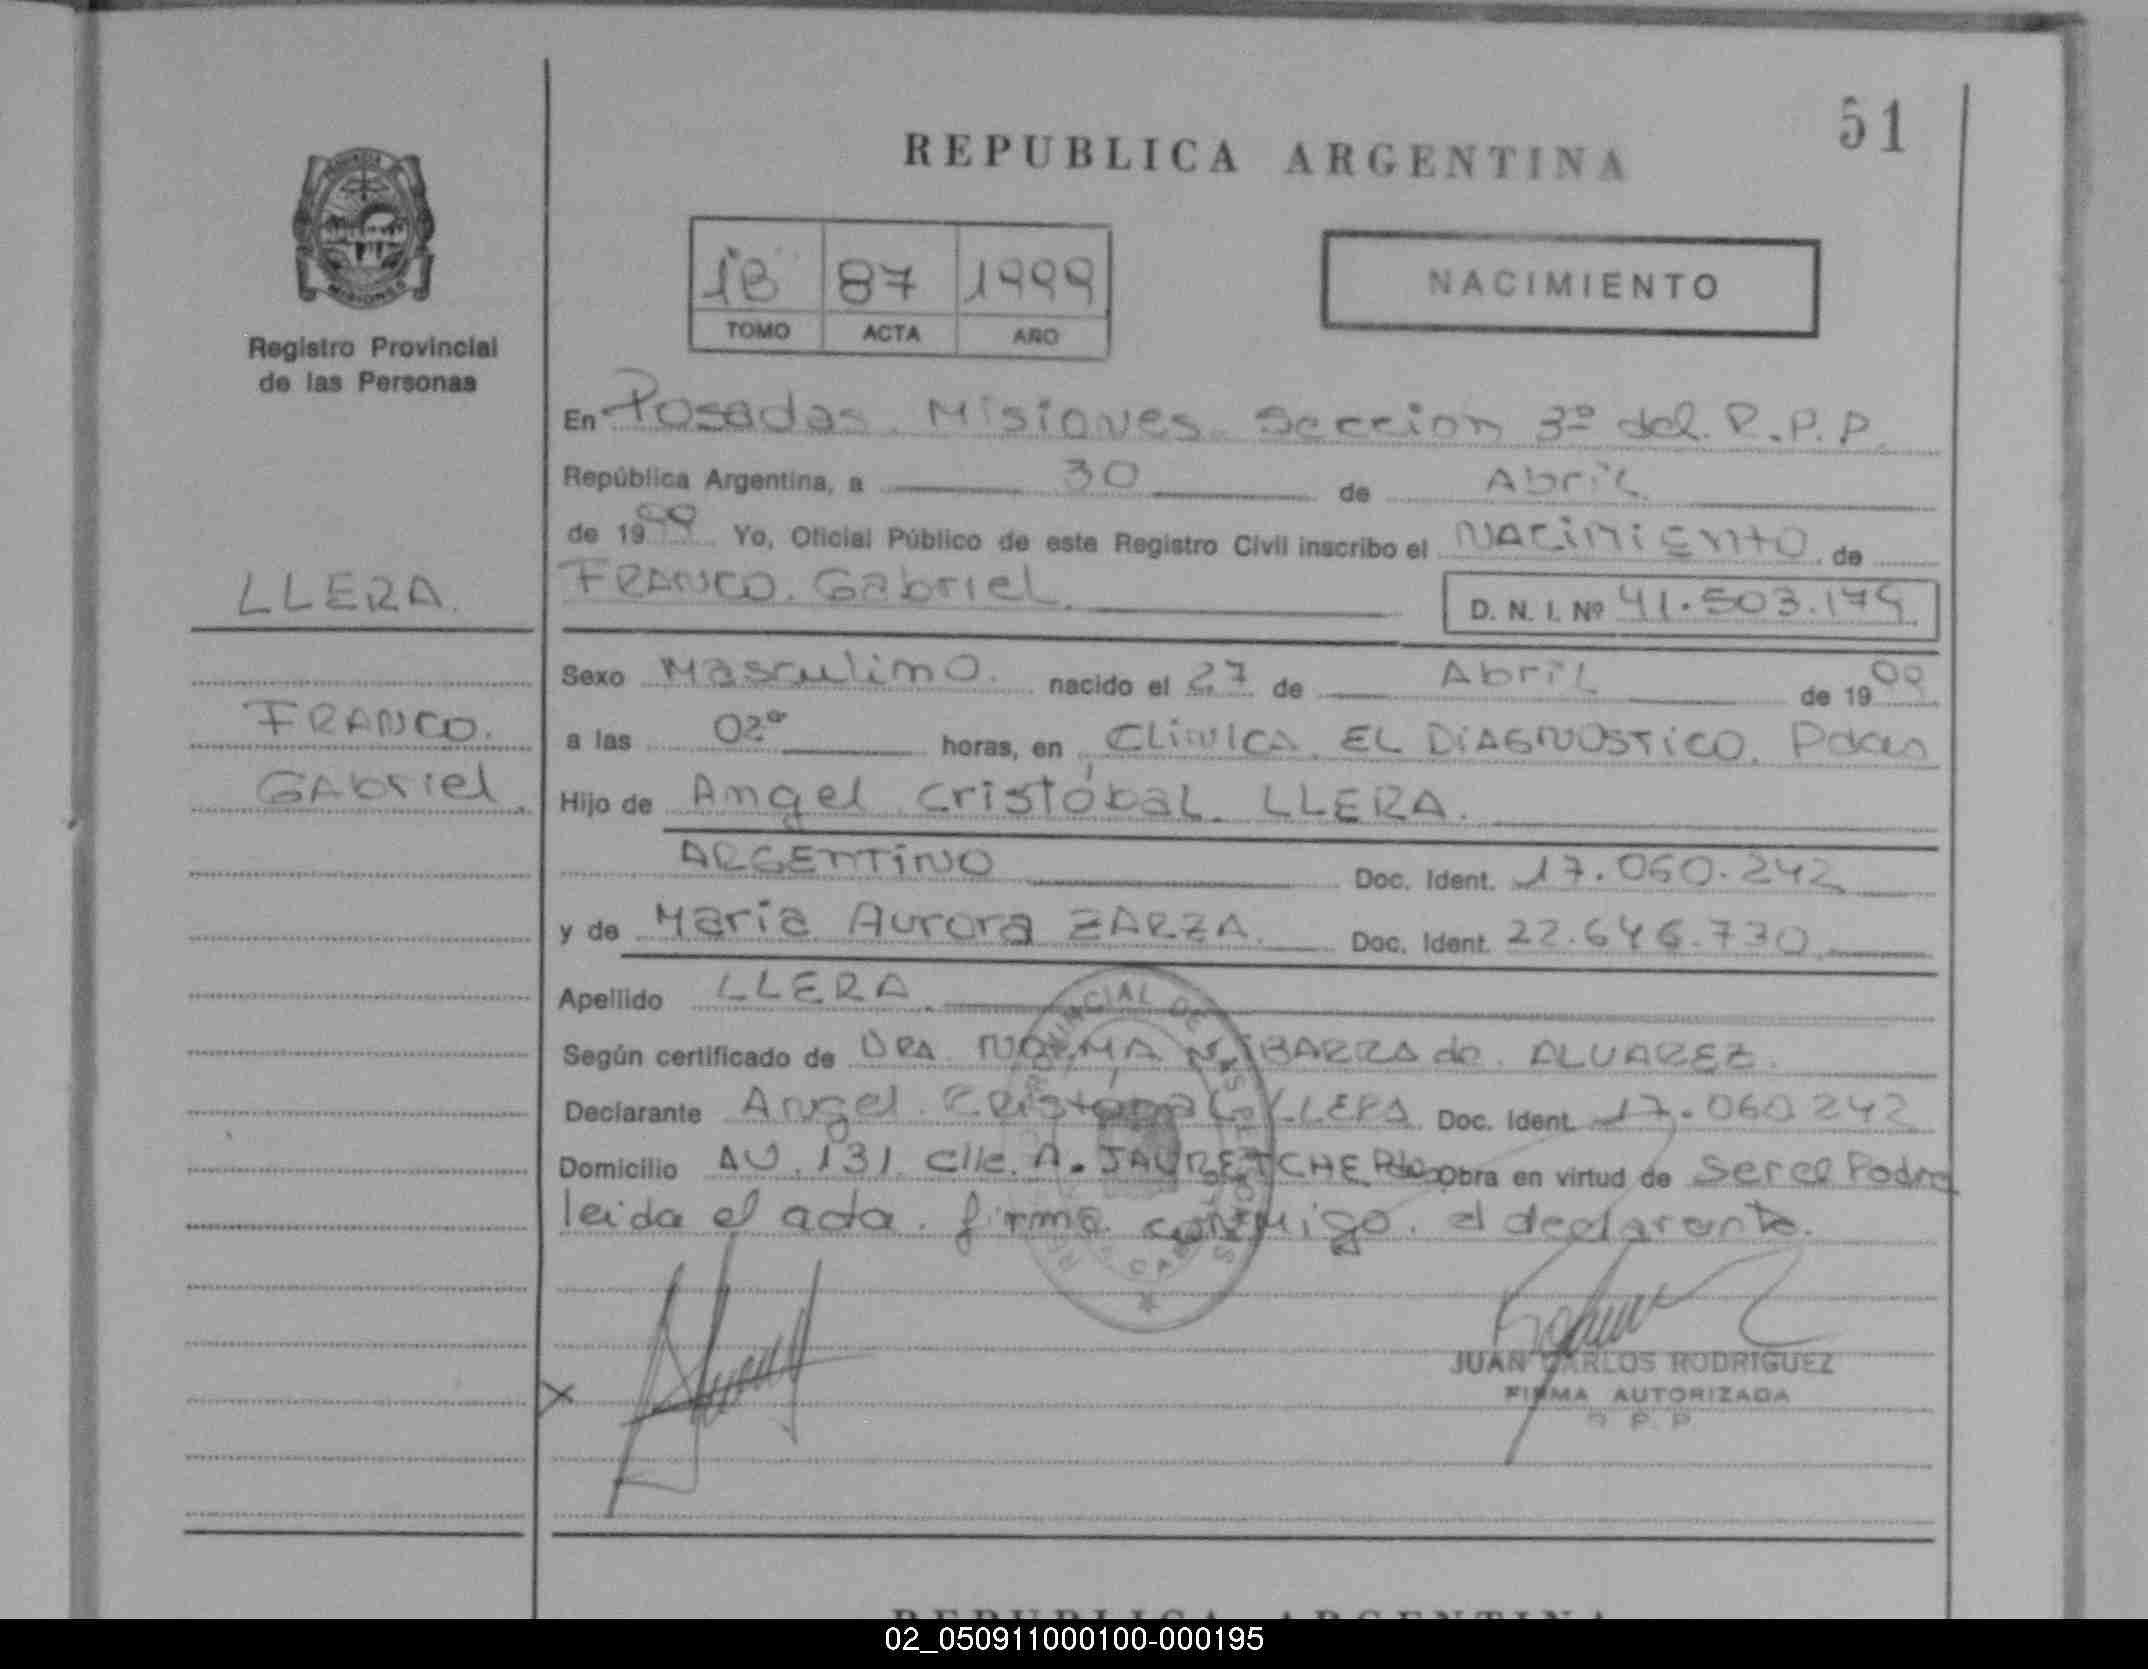 51
REPUBLICA ARGENTINA
MISIONES
Registro Provincial
de las Personas
1B 87 1999
TOMO ACTA AÑO
NACIMIENTO
En Posadas. Misiones. Seccion 3º del. R.P.P.
República Argentina, a 30 de Abril
de 1999 Yo, Oficial Público de este Registro Civil inscribo el NACIMIENTO de
FRANCO. Gabriel.
D. N. I. Nº 41.503.174
LLERA.
FRANCO.
GAbriel.
Sexo Masculino. nacido el 27 de Abril de 1999
a las 02º horas, en CLINICA EL DIAGNOSTICO. Pdas
Hijo de Angel Cristóbal LLERA.
ARGENTINO Doc. Ident. 17.060.242
y de Maria Aurora ZARZA. Doc. Ident. 22.646.730
Apellido LLERA.
Según certificado de DRA NORMA N. IBARRA de. ALVAREZ.
Declarante Angel Cristóbal LLERA Doc. Ident. 17.060.242
Domicilio AV. 131 clle. A. JAURETCHE Pdas Obra en virtud de Ser el Padre
leida el acta. firma conmigo. el declarante.
JUAN CARLOS RODRIGUEZ
FIRMA AUTORIZADA
R P P
REPUBLICA ARGENTINA
02_050911000100-000195